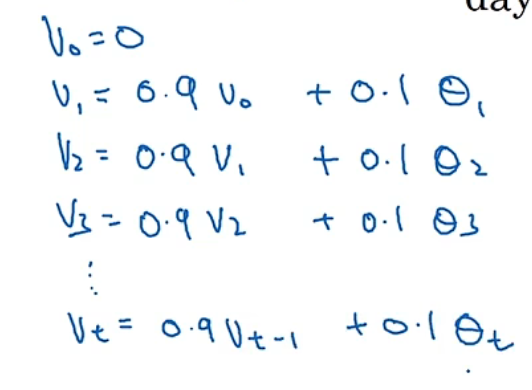 day
V₀ = 0
V₁ = 0.9 V₀ + 0.1 θ₁
V₂ = 0.9 V₁ + 0.1 θ₂
V₃ = 0.9 V₂ + 0.1 θ₃
⋮
Vₜ = 0.9 Vₜ₋₁ + 0.1 θₜ